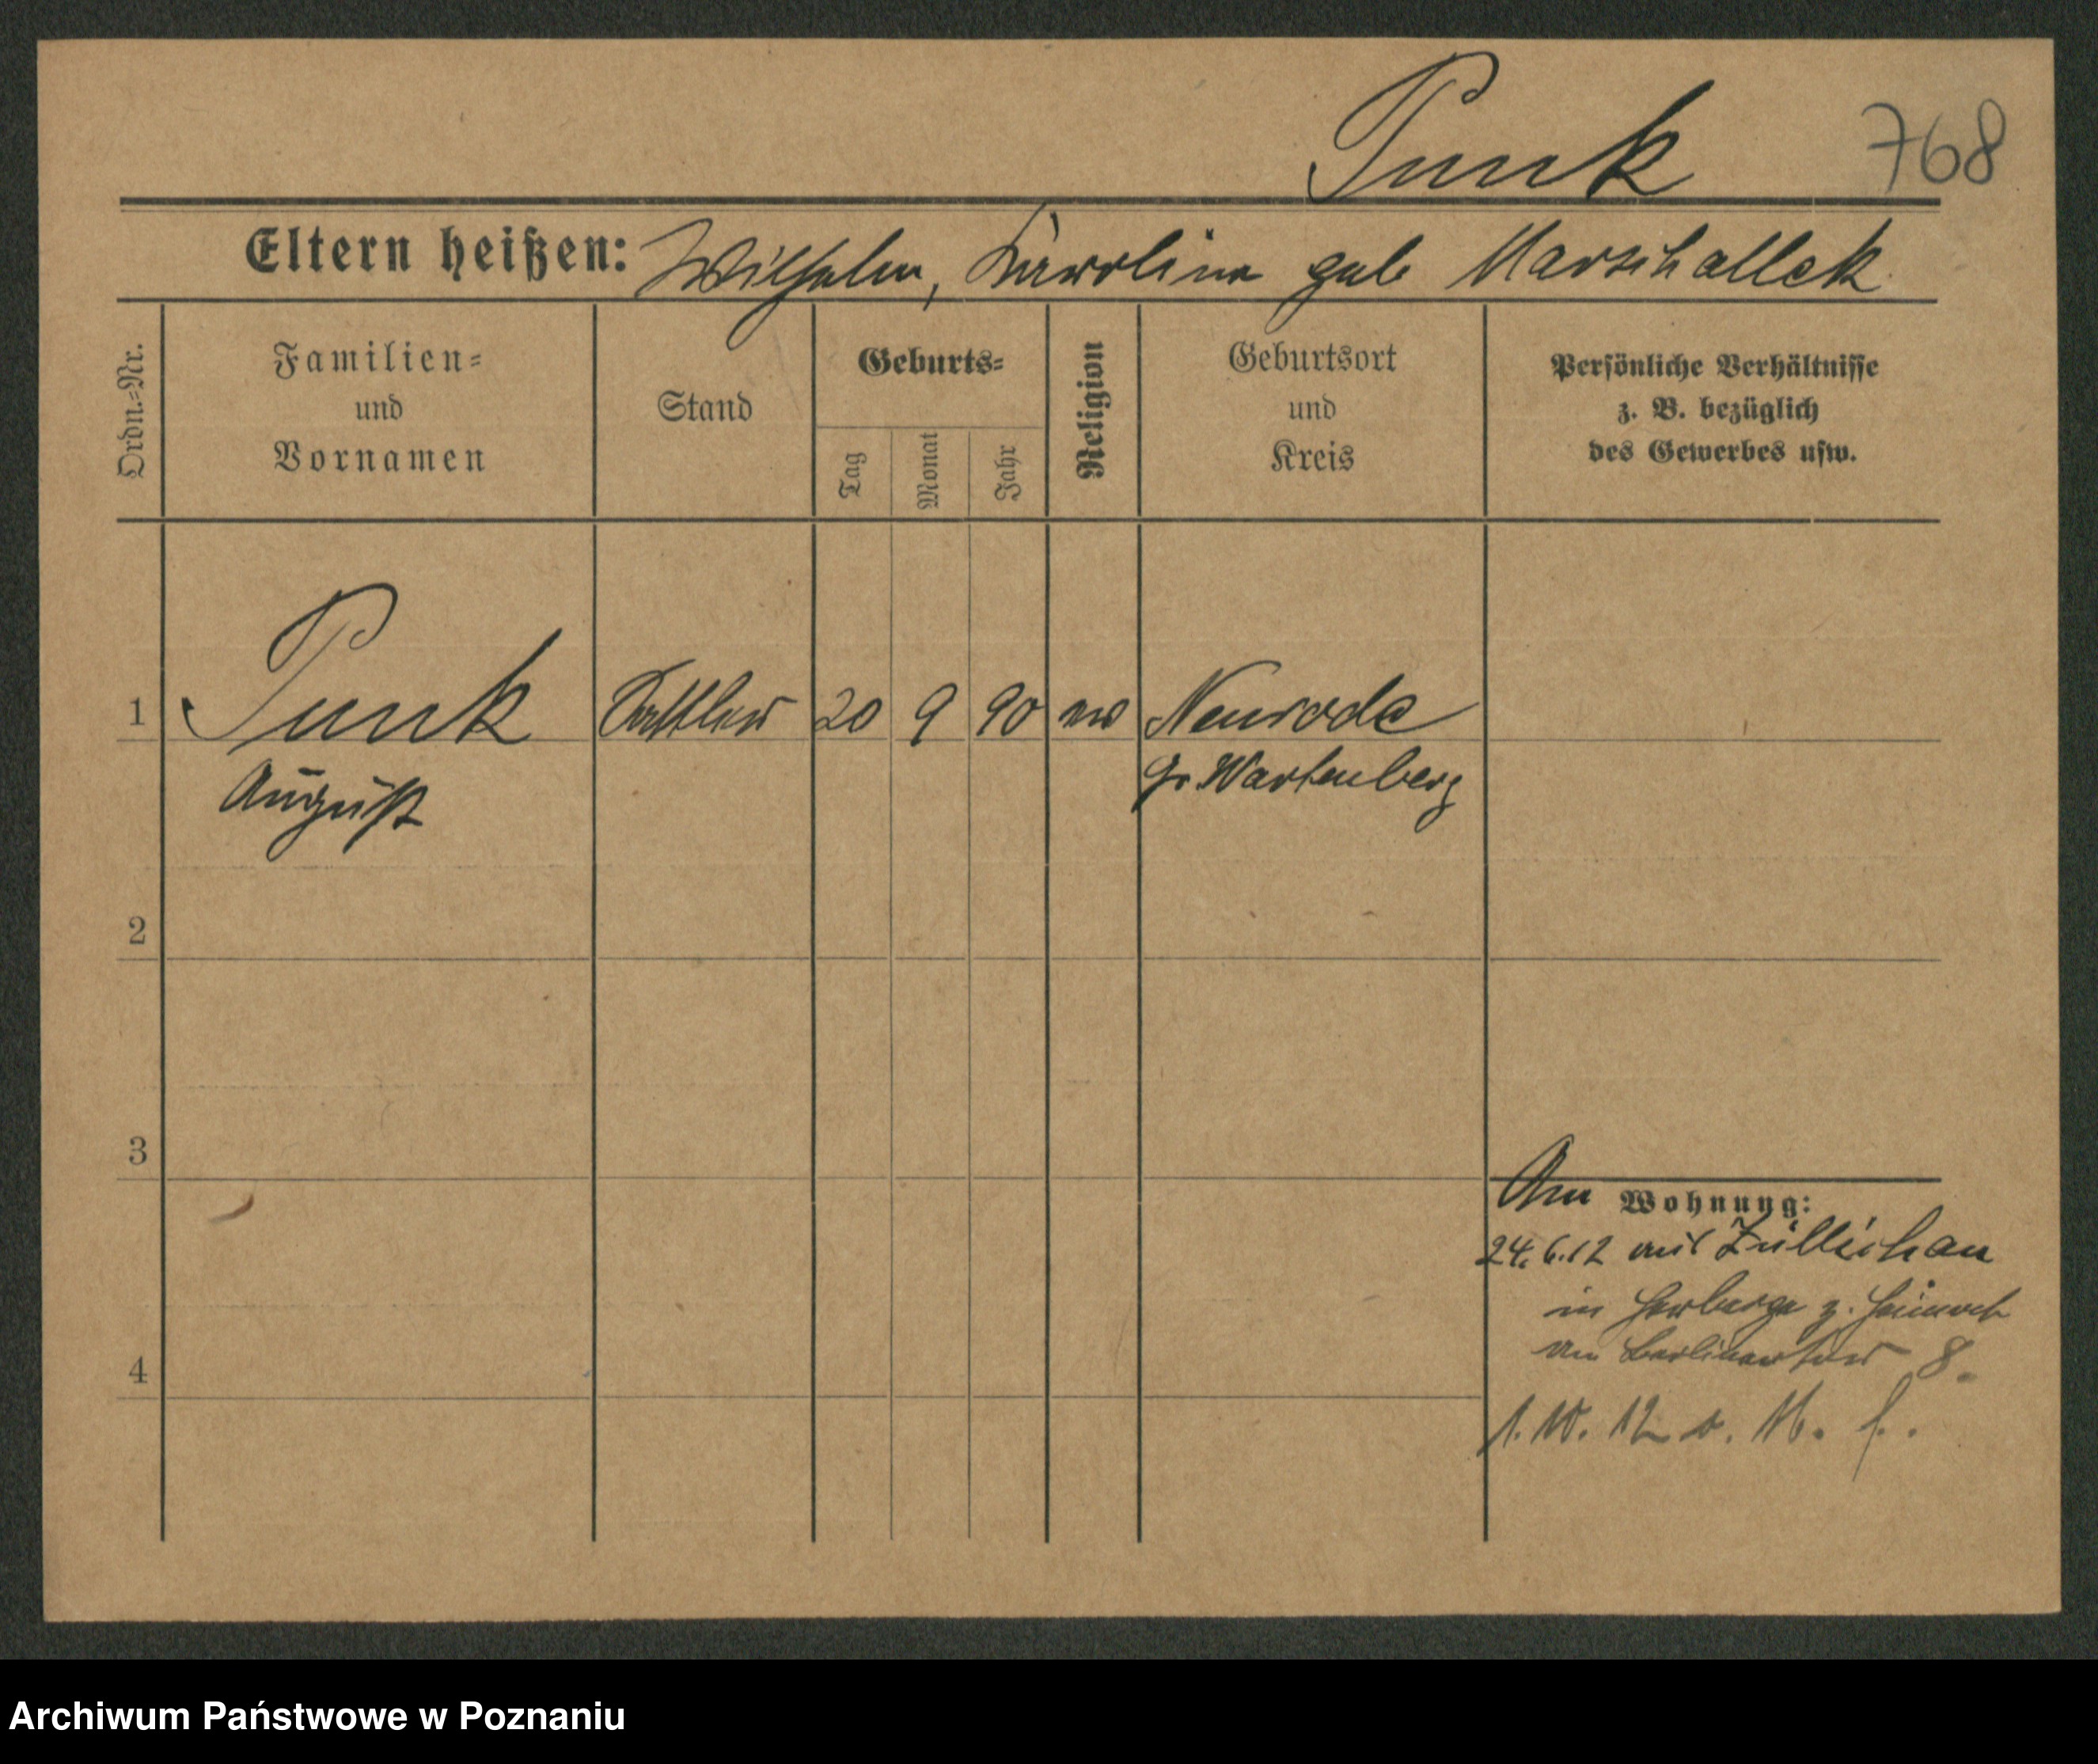 Punk 768
Eltern heißen: Wilhelm, Karoline geb. Marschallek
Ordn.=Nr.
Familien=
und
Vornamen
Stand
Geburts=
Tag
Monat
Jahr
Religion
Geburtsort
und
Kreis
Persönliche Verhältnisse
z. B. bezüglich
des Gewerbes usw.
1 Punk Sattler 20 9 90 ev Neurode
August Gr. Wartenberg
2
3
Am Wohnung:
24.6.12 aus Züllichau
in Herberge z. Heimat
am Berlinertor 8.
4
1. 10. 12 v. M. f.
Archiwum Państwowe w Poznaniu